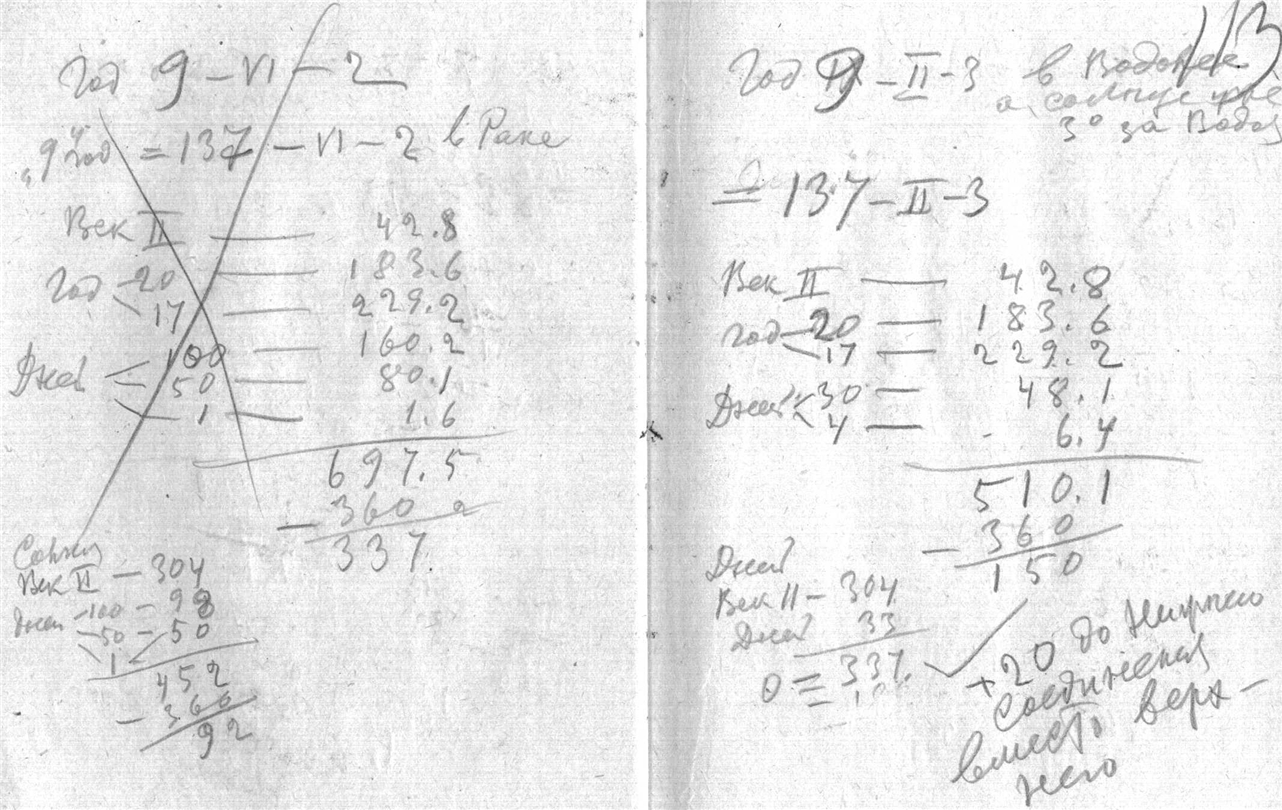 Год 9 – VI – 2
„9й год = 137 – VI – 2 в Раке
Век II — 42.8
Год – 20 — 183.6
17 — 229.2
Дней 100 — 160.2
50 — 80.1
1 — 1.6
697.5
– 360
337.
Солнце
Век II – 304
Дней – 100 – 98
50 – 50
1
452
– 360
92
113
Год 9 – II – 3 в Водолее
а солнце уже
3° за Водол
= 137 – II – 3
Век II — 42.8
Год – 20 — 183.6
17 — 229.2
Дней 30 — 48.1
4 — 6.4
510.1
– 360
150
Дней
Век II – 304
Дней 33
0 = 337.
+20 до Нижнего
Соединения
вместо верх–
него